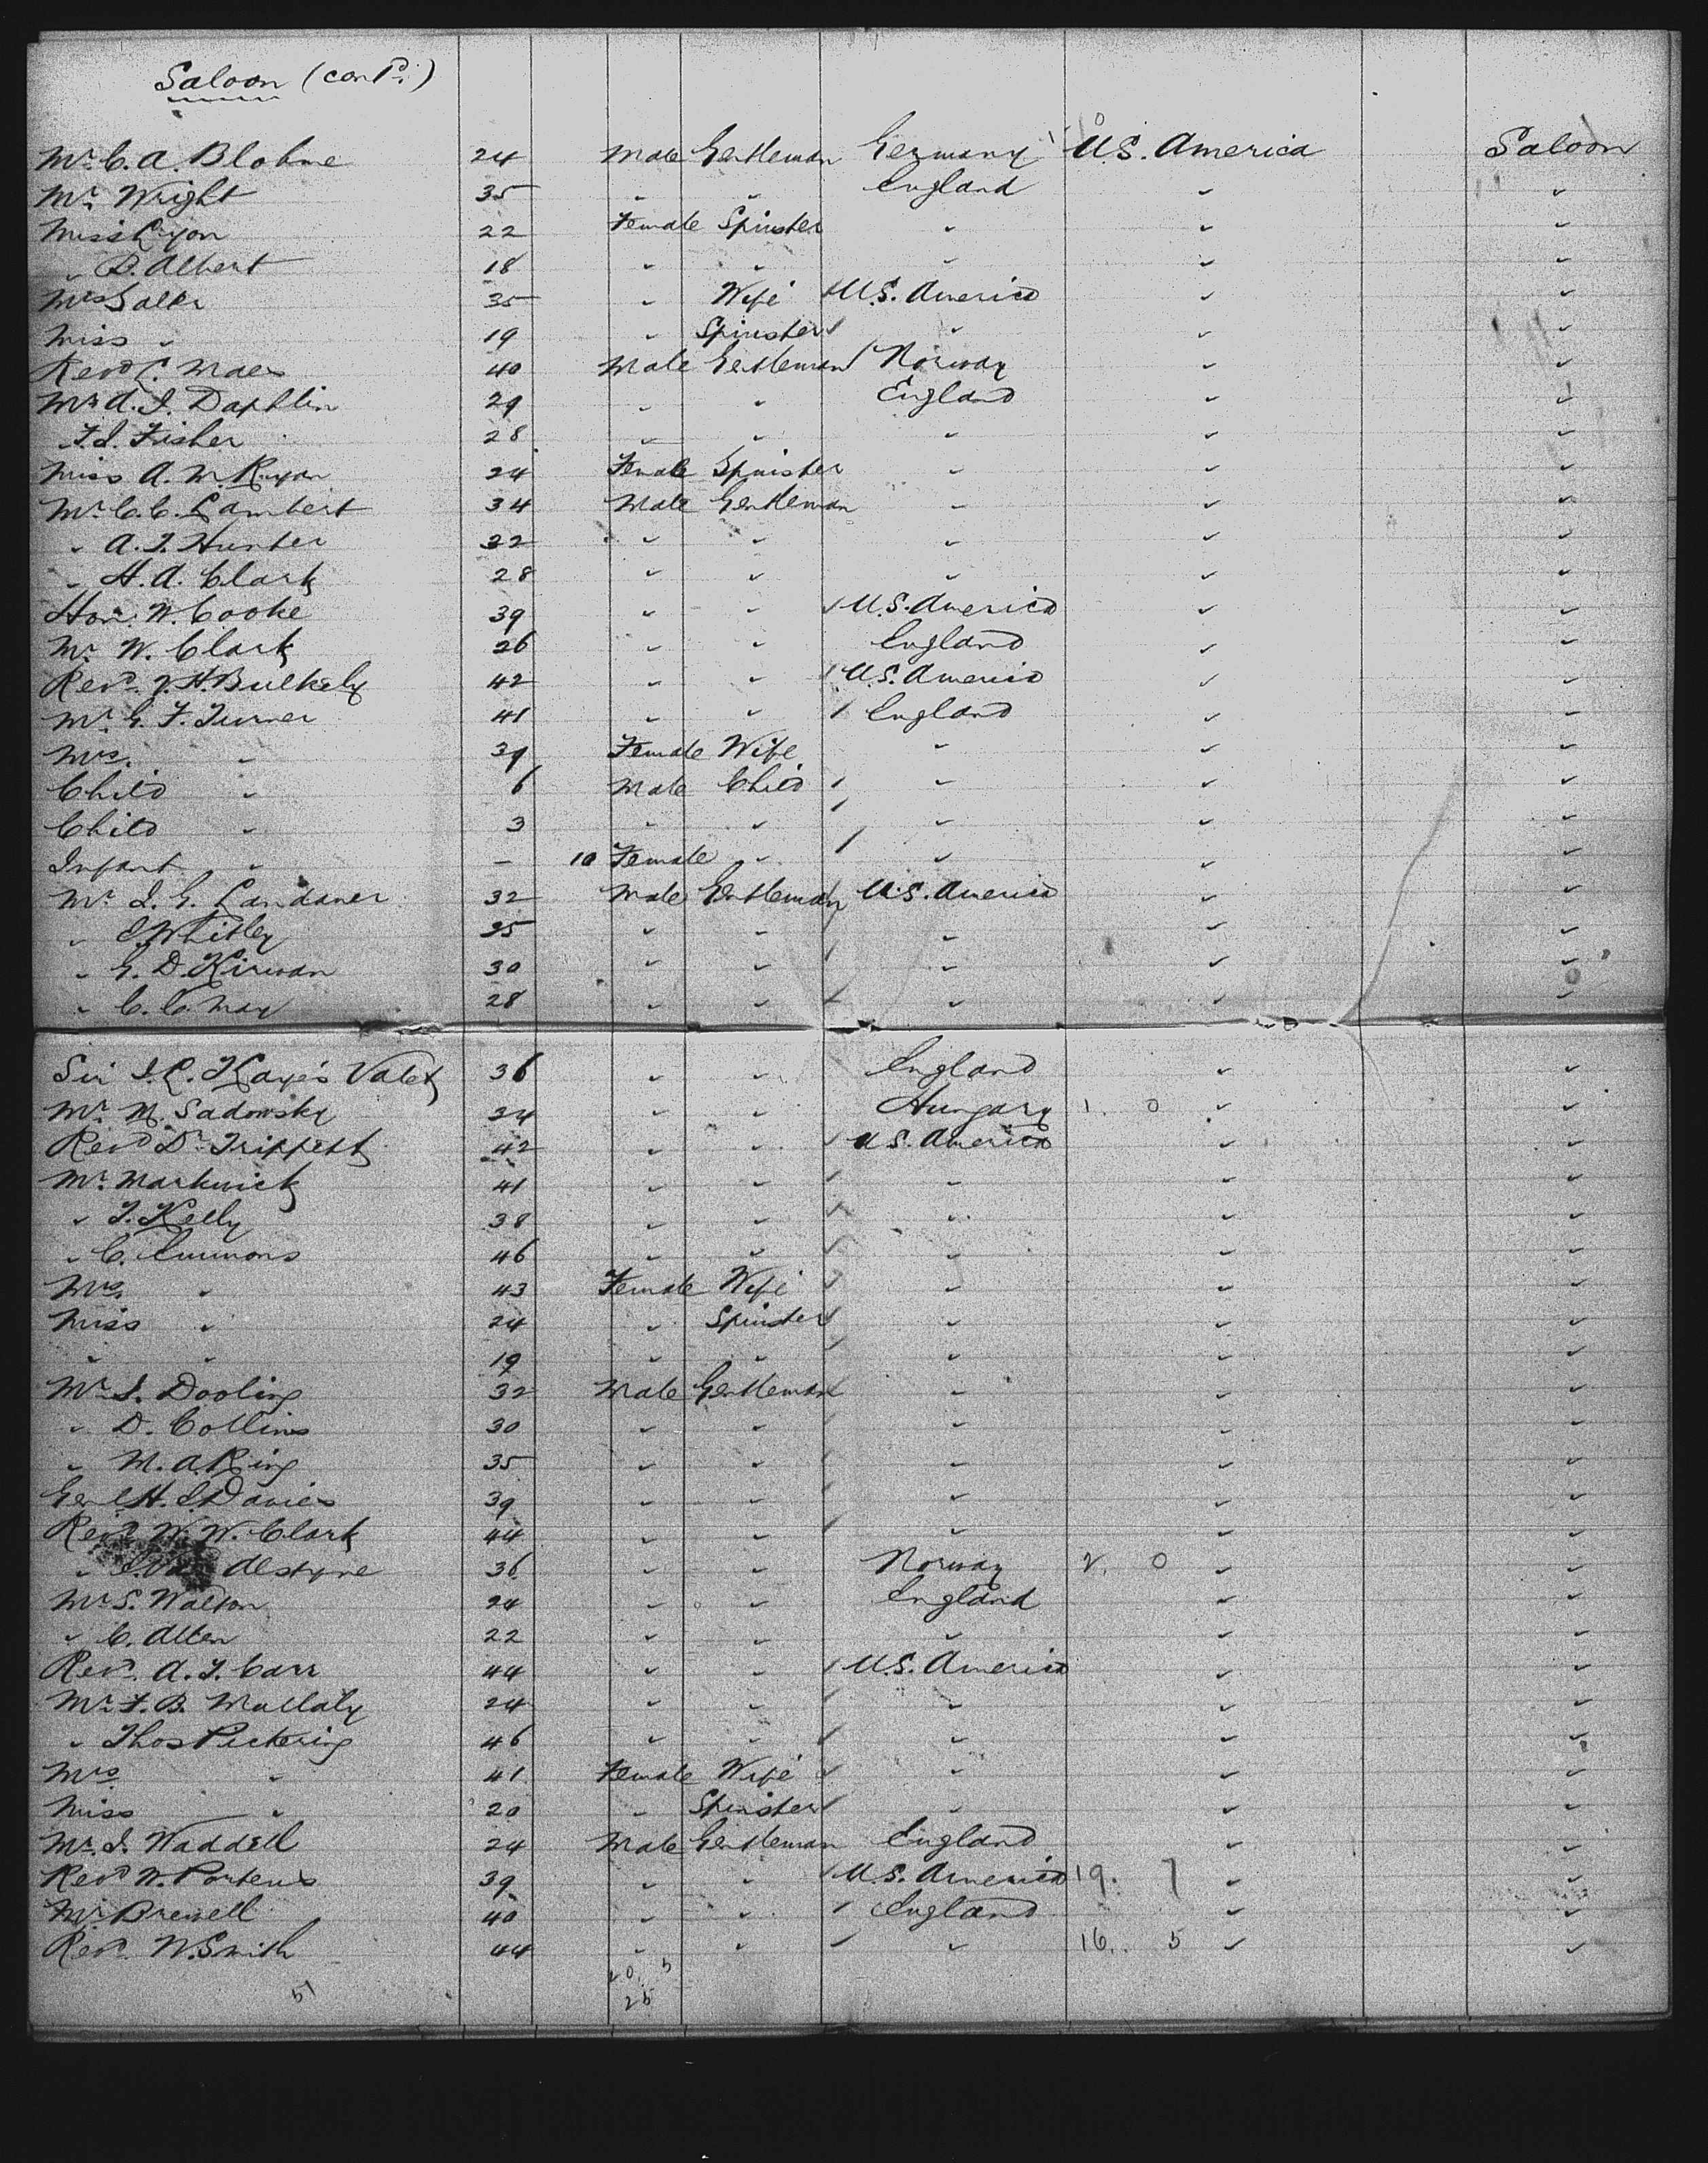 Saloon (cont'd.)
Mr. C. A. Blohme 24 Male Gentleman Germany U.S. America Saloon
Mr. Wright 35 " " England " "
Miss Ryan 22 Female Spinster " " "
" B. Albert 18 " " " " "
Mrs 35 " Wife U.S. America " "
Miss " 19 " Spinster " " "
Revd C. Maes 40 Male Gentleman Norway " "
Mr A. J. Daphlin 29 " " England " "
F. S. Fisher 28 " " " " "
Miss A. M. Ryan 24 Female Spinster " " "
Mr. C. C. Lambert 34 Male Gentleman " " "
" A. J. Hunter 32 " " " " "
" H. A. Clark 28 " " " " "
Hon. W. Cooke 39 " " U.S. America " "
Mr. W. Clark 26 " " England " "
Revd. J. H. Bulkely 42 " " U.S. America " "
Mr. G. F. Turner 41 " " England " "
Mrs. " 39 Female Wife " " "
Child " 6 Male Child " " "
Child " 3 " " " " "
Infant " – 10 Female " " " "
Mr. I. G. Landauer 32 Male Gentleman U.S. America " "
" S. Whitley 25 " " " " "
" G. D. Kirwan 30 " " " " "
" C. C. May 28 " " " " "
Sir J. L. Kaye's Valet 36 " " England " "
Mr. M. Sadowsky 34 " " Hungary 1. 0 " "
Revd Dr. Trippett 42 " " U.S. America " "
Mr. Markwick 41 " " " " "
" T. Kelly 38 " " " " "
" C. Emmons 46 " " " " "
Mrs. " 43 Female Wife " " "
Miss " 24 " Spinster " " "
" " 19 " " " " "
Mr. J. Dooling 32 Male Gentleman " " "
" D. Collins 30 " " " " "
" M. A. Ring 35 " " " " "
Genl. H. E. Davies 39 " " " " "
Revd W. W. Clark 44 " " " " "
" Van Alstyne 36 " " Norway 2. 0 " "
Mr. S. Walton 24 " " England " "
" C. Allen 22 " " " " "
Revd. A. J. Carr 44 " " U.S. America " "
Mr. F. B. Mullaly 24 " " " " "
" Thos Pickering 46 " " " " "
Mrs. " 41 Female Wife " " "
Miss " 20 " Spinster " " "
Mr. J. Waddell 24 Male Gentleman England " "
Revd W. Porteus 39 " " U.S. America 19. 7 " "
Mr. Brewell 40 " " England " "
Revd. W. Smith 44 " " " 16. 5 " "
20. 5
51
25